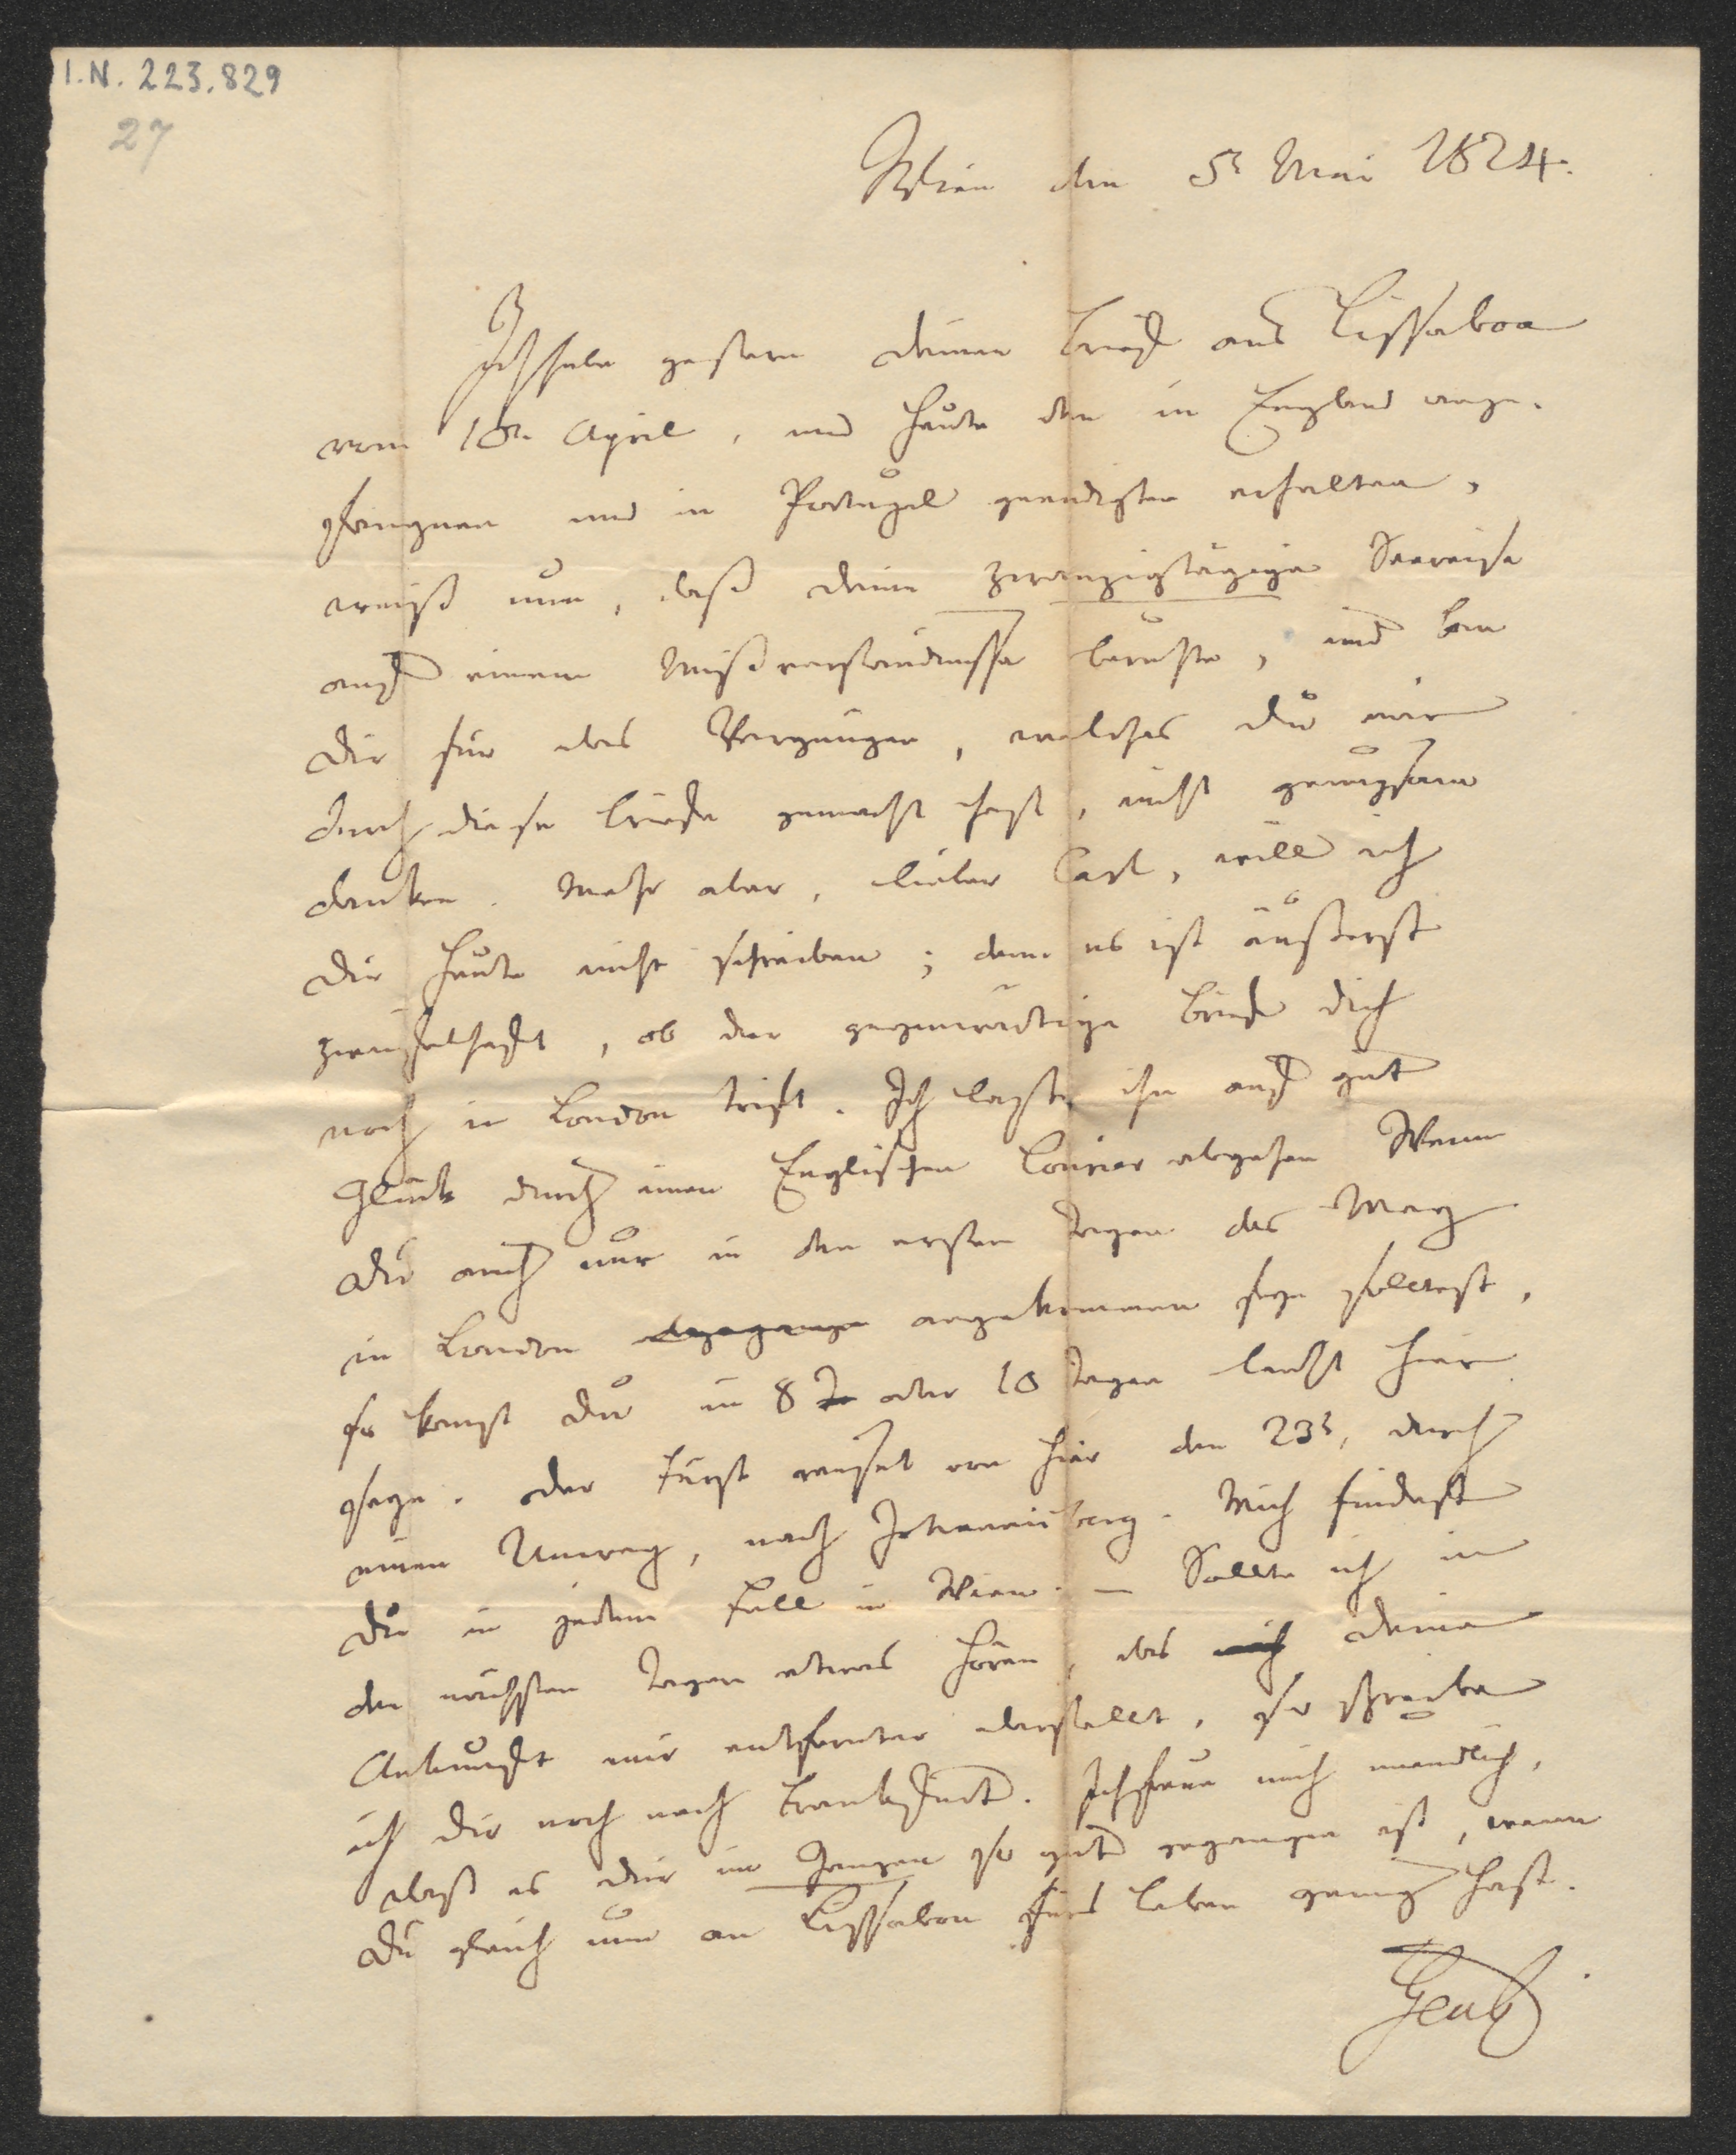 I.N. 223.829
27
Wien den 5t Mai 1824.
Ich habe gestern deinen Brief aus Lissabon
vom 10n April, und heute den in England ange-
fangnen und in Portugal geendigten erhalten,
weiß nun, daß deine zwanzigtägige Seereise
auf einem Mißverständnisse beruhte, und kann
Dir für das Vergnügen, welches Du mir
durch diese Briefe gemacht hast, nicht genugsam
danken. Mehr aber, lieber Carl, will ich
Dir heute nicht schreiben; denn es ist äußerst
zweifelhaft, ob der gegenwärtige Brief Dich
noch in London trift. Ich lasse ihn auf gut
Glück durch einen Englischen Courier abgehen. Wenn
Du auch nur in den ersten Tagen des May
in London abgegangen angekommen seyn solltest,
so kanst Du in 8 Ta oder 10 Tagen leicht hier
seyn. Der Fürst reiset von hier den 23t, durch
einen Umweg, nach Johannisberg. Mich findest
Du in jedem Fall in Wien. – Sollte ich in
den nächsten Tagen etwas hören, das mich deine
Ankunft mir entfernter darstellt, so schreibe
ich Dir noch nach Frankfurt. Ich freue mich unendlich,
daß es Dir im Ganzen so gut gegangen ist, wenn
Du gleich nun an Lissabon fürs Leben genug hast.
Gentz